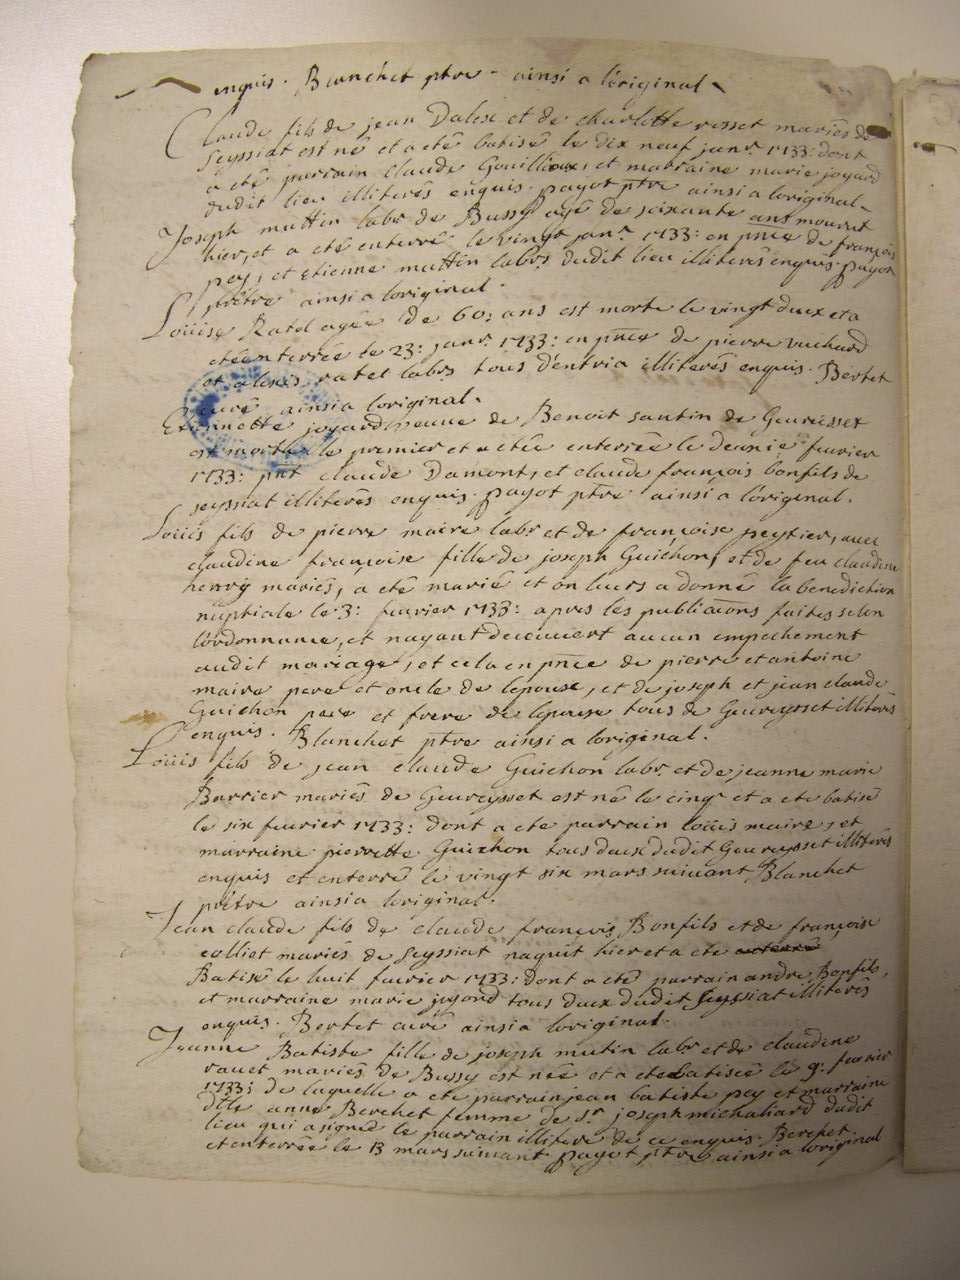 enquis. Blanchet ptre. ainsi a loriginal
Claude fils de jean Dalex et de charlotte rosset mariés de
Seyssiat est né et a eté batisé le dix neuf janr. 1733: dont
a eté parrain claude Gouilloux, et marraine marie joyard
dudit lieu illiterés enquis. payot ptre ainsi a loriginal
Joseph muttin labr. de Bussy agé de soixante ans mourut
hier, et a eté enterré le vingt janr. 1733: en pnce de françois
pey, et Etienne muttin labrs. dudit lieu illiterés enquis. payot
prêtre ainsi a loriginal.
Loüise Ratel agée de 60: ans est morte le vingt deux et a
eté enterrée le 23: janr. 1733: en pnce de pierre vuchard
et alexis ratel labrs. tous d'entria illiterés enquis. Bertet
curé ainsi a loriginal.
Etiennette joyard veuve de Benoit santin de Geurisset
est morte le premier et a eté enterrée le février
1733: pnt claude Damont, et claude françois bonfils de
seyssiat illiterés enquis. payot ptre. ainsi a loriginal.
Loüis fils de pierre maire labr. et de françoise peytier, avec
claudine françoise fille de joseph Guichon, et de feu claudine
henry mariés, a eté marié et on leurs a donné la benediction
nuptiale le 3: fevrier 1733: apres les publicaons faites selon
l'ordonnance, et nayant decouvert aucun empechement
audit mariage, et cela en pnce de pierre et antoine
maire pere et oncle de lepoux, et de joseph et jean claude
Guichon pere et frere de lepouse tous de Geureysset illiterés
enquis. Blanchet ptre ainsi a loriginal.
Loüis fils de jean claude Guichon labr. et de jeanne marie
Barrier mariés de Geureysset est né le cinq et a eté batisé
le six fevrier 1733: dont a eté parrain loüis maire, et
marraine pierrette Guichon tous deux dudit Geureysset illiterés
enquis et enterré le vingt six mars suivant Blanchet
prêtre ainsi a loriginal.
Jean claude fils de claude françois Bonfils et de françoise
colliot mariés de Seyssiat naquit hier et a eté enterré
Batisé le huit fevrier 1733: dont a eté parrain andré Bonfils,
et marraine marie joyard tous deux dudit Seyssiat illiterés
enquis. Bertet curé ainsi a loriginal.
Jeanne Batiste fille de joseph mutin labr. et de claudine
ravet mariés de Bussy est née et a eté batisée le 9: fevrier
1733: de laquelle a eté parrain jean batiste pey et marraine
dlle anne Berchet femme de Sr. joseph michaliard dudit
lieu qui a signé le parrain illitere de ce enquis. Berchet.
et enterrée le 13 mars suivant payot ptre ainsi a loriginal